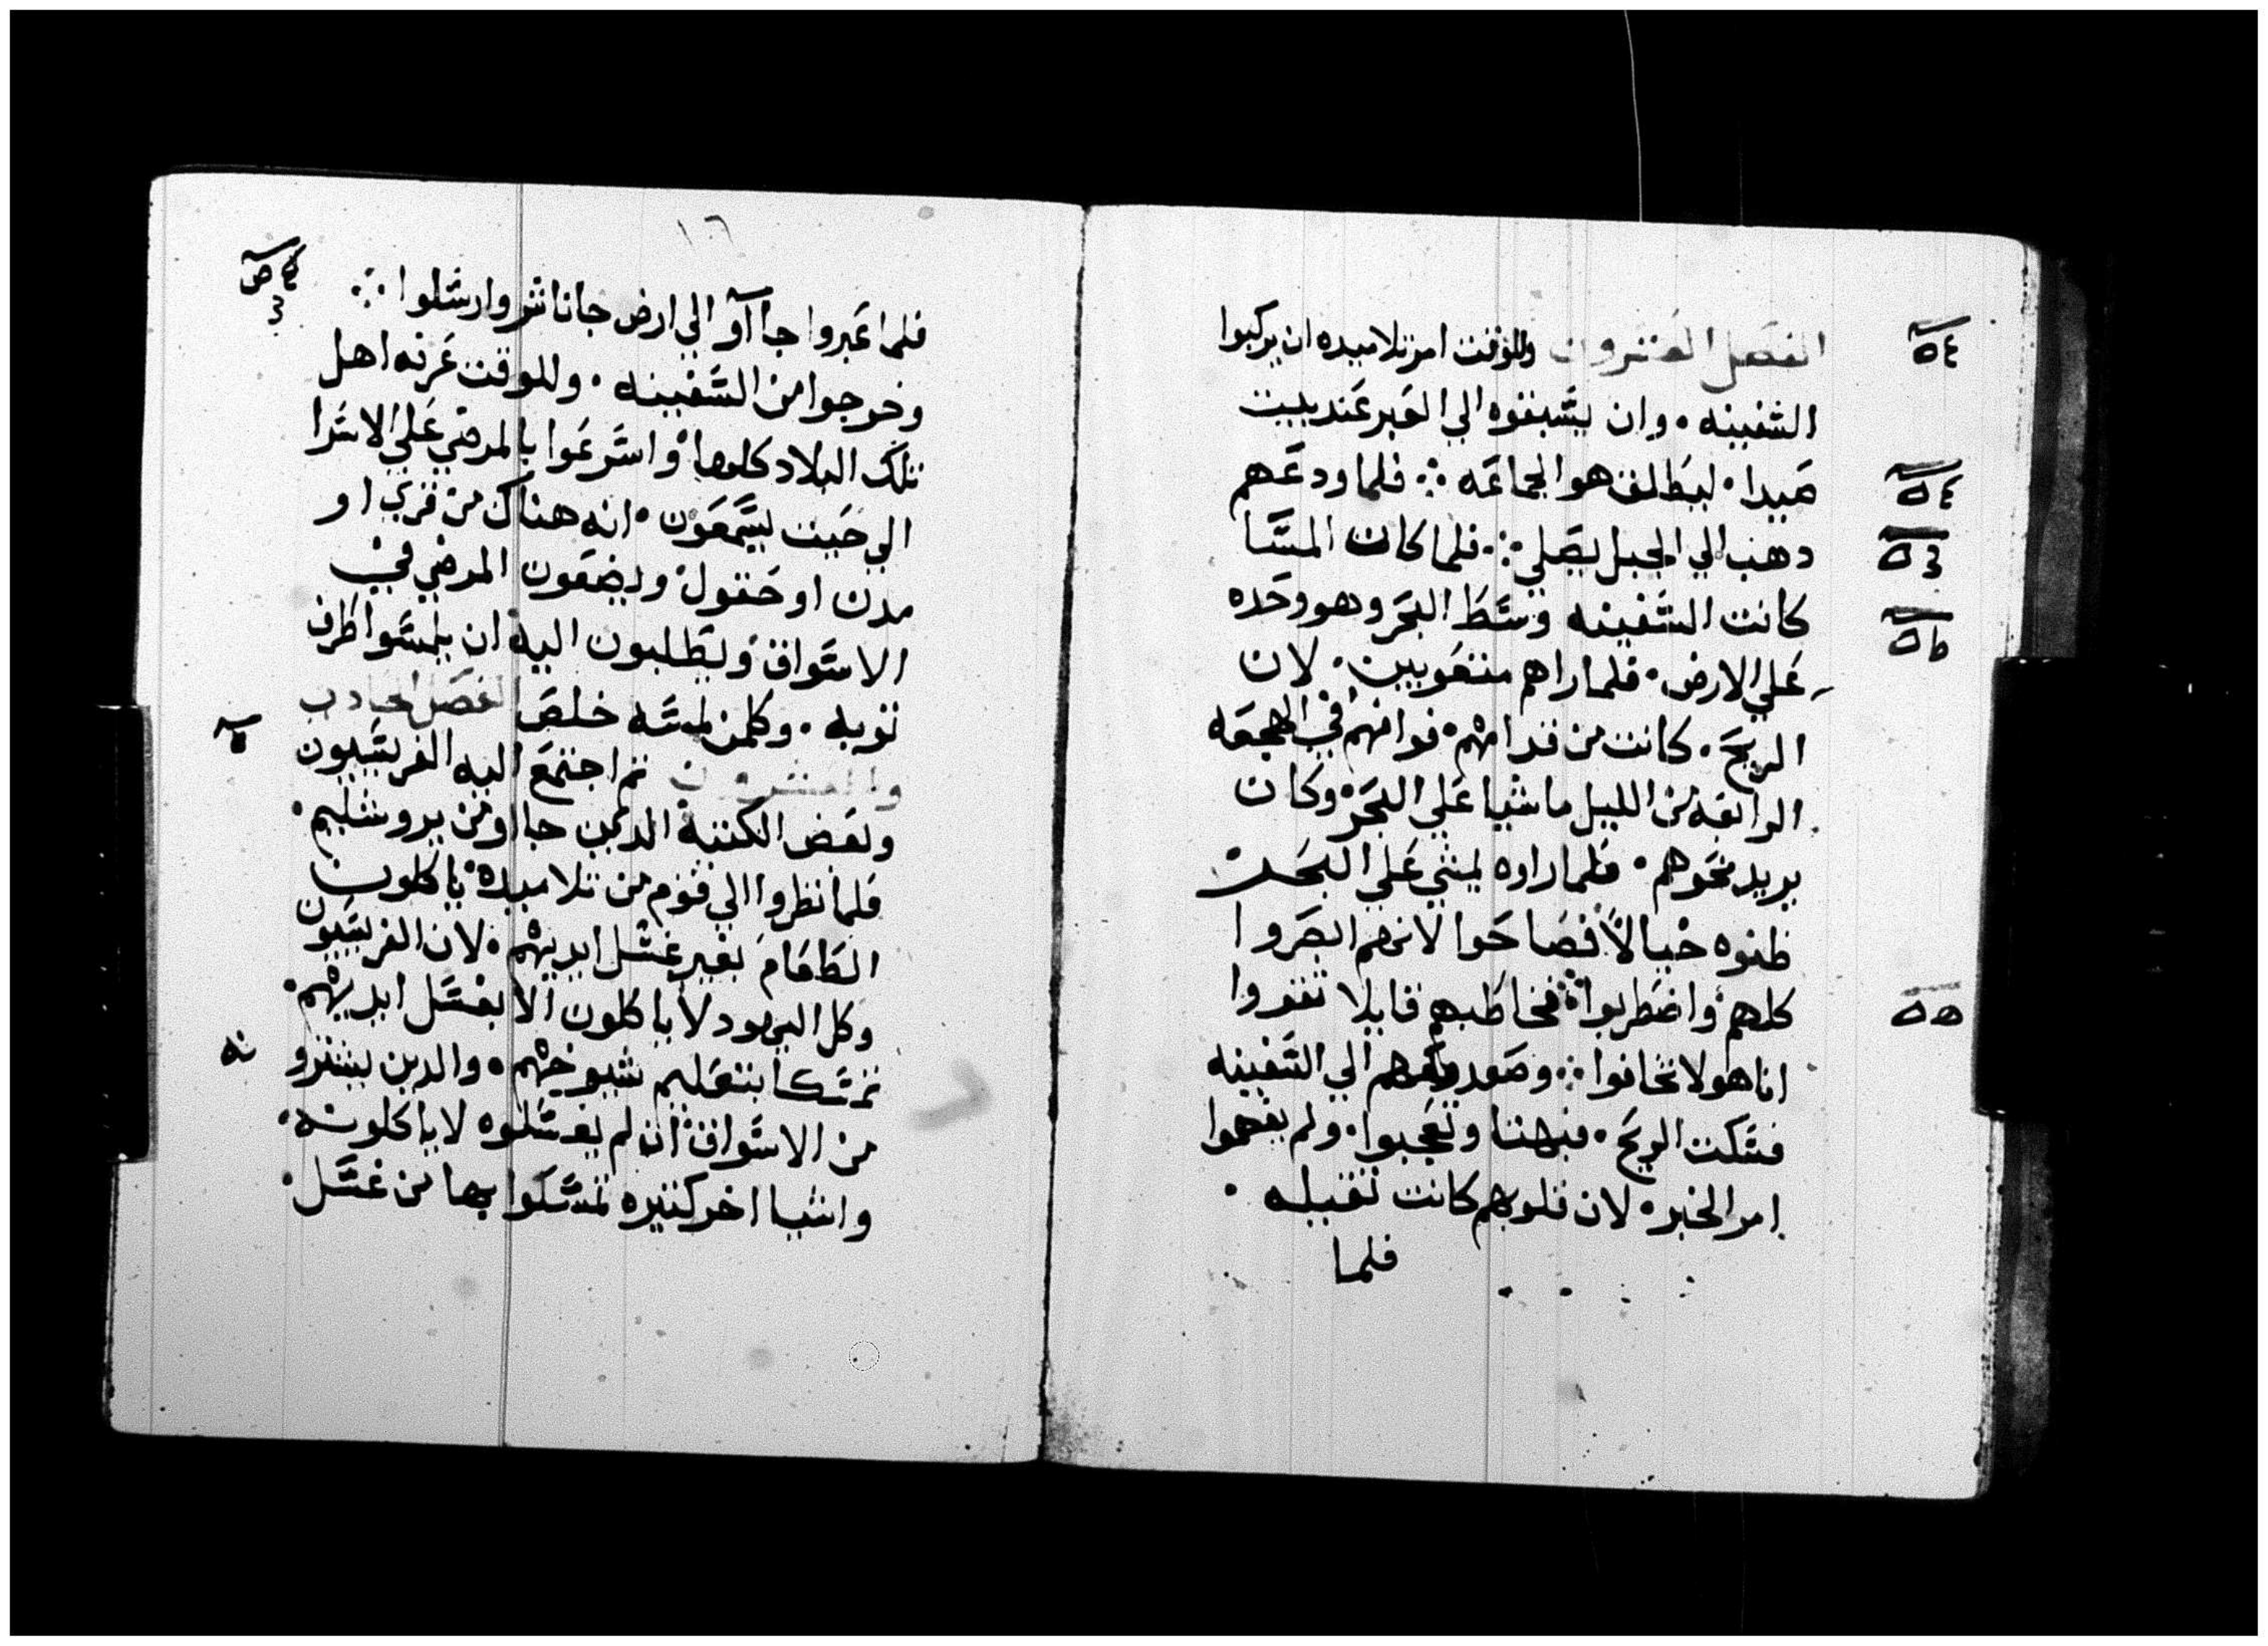 الفصل العشرون وللوقت امر تلاميده ان يركبوا
السفينه · وان يسبقوه الي العبر عند بيت
صيدا · ليطلق هو الجماعه ∴ فلما ودعهم
دهب الي الجبل ليصلي ∴ فلما كان المسا
كانت السفينه وسط البحر وهو وحده
علي الارض · فلما راهم متعوبين · لان
الريح · كانت من قدامهم · فوافهم في الهجعه
الرابعه من الليل ماشيا علي البحر وكان
يريد نحوهم · فلما راوه يمشي علي البحر
ظنوه خيالا فصاحوا لانهم ابصروا
كلهم واضطربوا ∴ فخاطبهم قايلا تقووا
انا هو لا تخافوا ∴ وصعد الي السفينه
فسكت الريح · فبهتا وتعجبوا · ولم يفهموا
امر الخبز · لان قلوبهم كانت تقيله ·
فلما
١٦
فلما عبروا جااو الي ارض جاناشر وارسلوا ∴
وخرجوا من السفينه · وللوقت عرفه اهل
تلك البلاد كلها واسرعوا بالمرضي علي الاسرا
الي حيت يسمعون · انه هناك من قري او
مدن او حقول ويضعون المرضي في
الاسواق ويطلبون اليه ان يلمسوا طرف
توبه · وكلمن لمسه خلص الفصل الحادي
والعشرون تم اجتمع اليه الفريسيون
وبعض الكتبه الدين جااو من يروشليم ·
فلما نظروا الي قوم من تلاميده ياكلون
الطعام بغير غسل ايديهم · لان الفريسيون
وكل اليهود لا ياكلون الا بغسل ايديهم ·
تمسكا بتعليم شيوخهم · والدين يشترو
من الاسواق ان لم يغسلوه لا ياكلونه ·
واشيا اخر كتيره تمسكوا بها من غسل ·